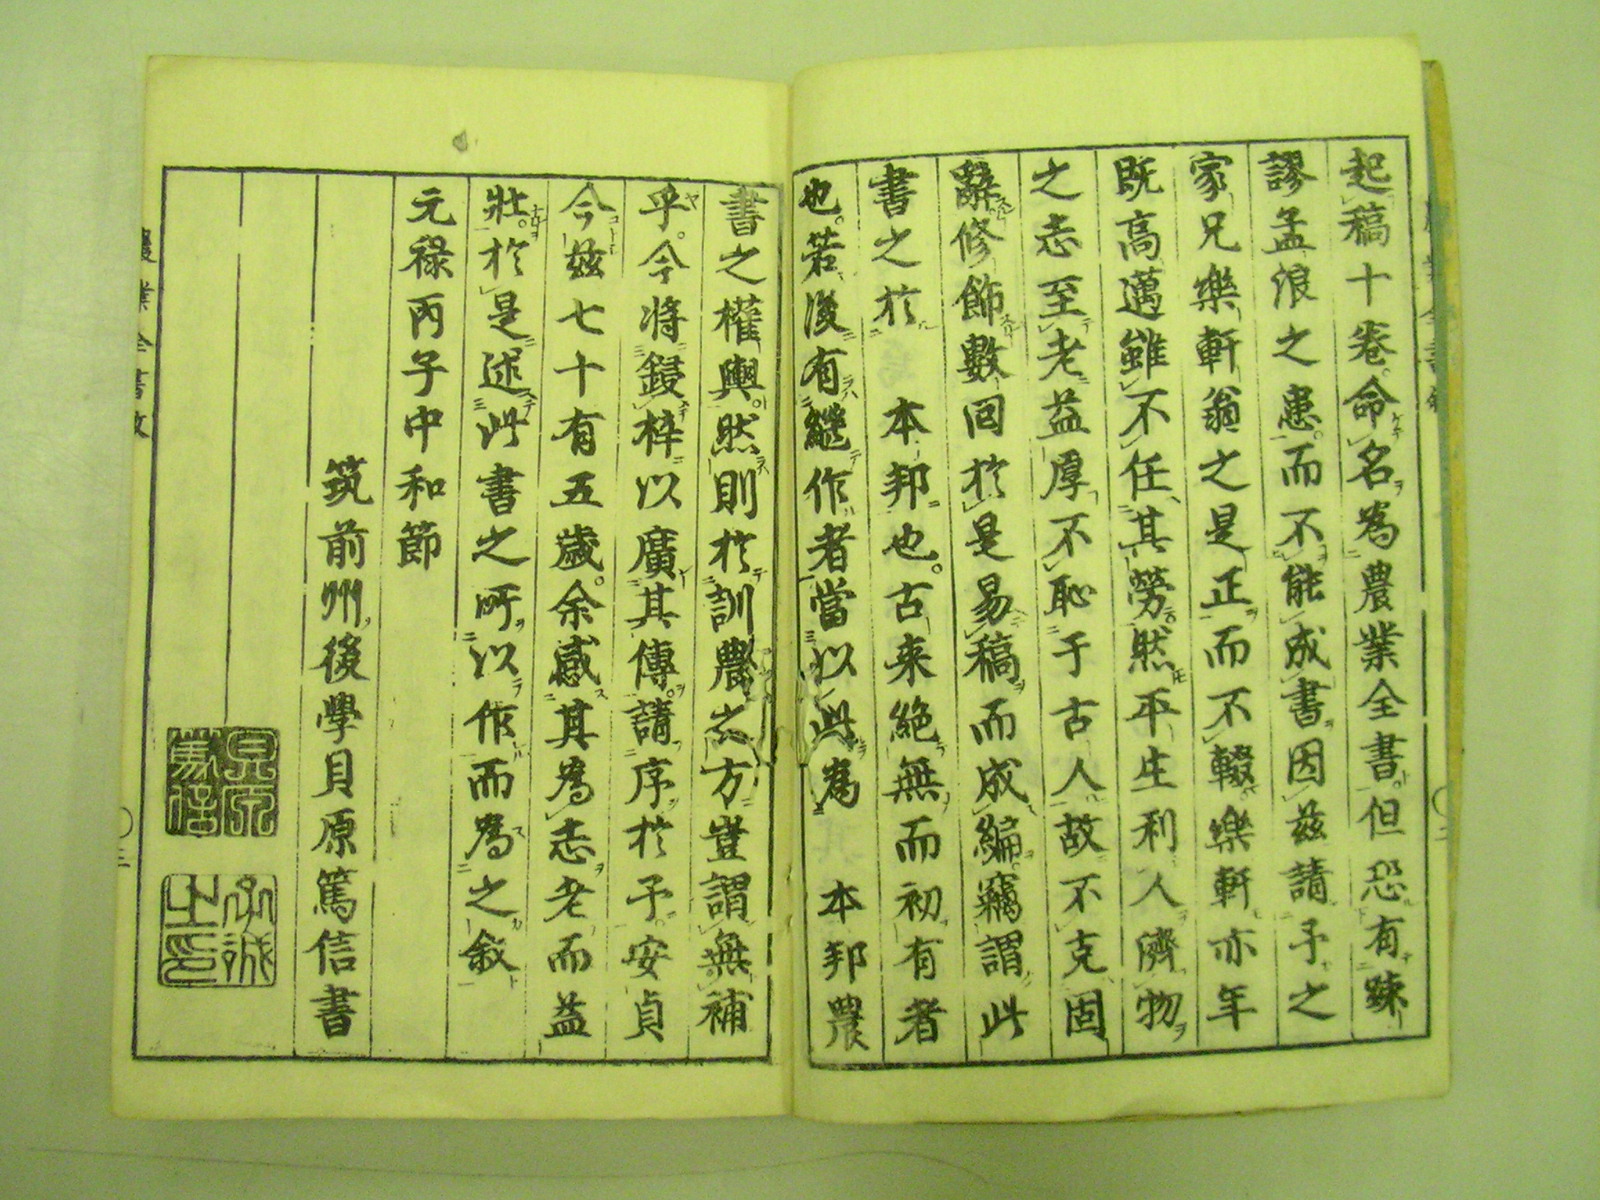 起稿十卷命名為農業全書但恐有踈
謬孟浪之患而不能成書因茲請予之
家兄樂軒翁之是正而不輟樂軒亦年
既高邁雖不任其勞然平生利人濟物
之志至老益厚不恥于古人故不克固
辭修飾數回於是易稿而成編竊謂此
書之於 本邦也古来絶無而初有者
也若後有繼作者當以此為 本邦農
書之權輿然則於訓農之方豈謂無補
乎今將鋟梓以廣其傳請序於予安貞
今茲七十有五歲余感其為志老而益
壯於是述此書之所以作而為之敘
元祿丙子中和節
筑前州後學貝原篤信書